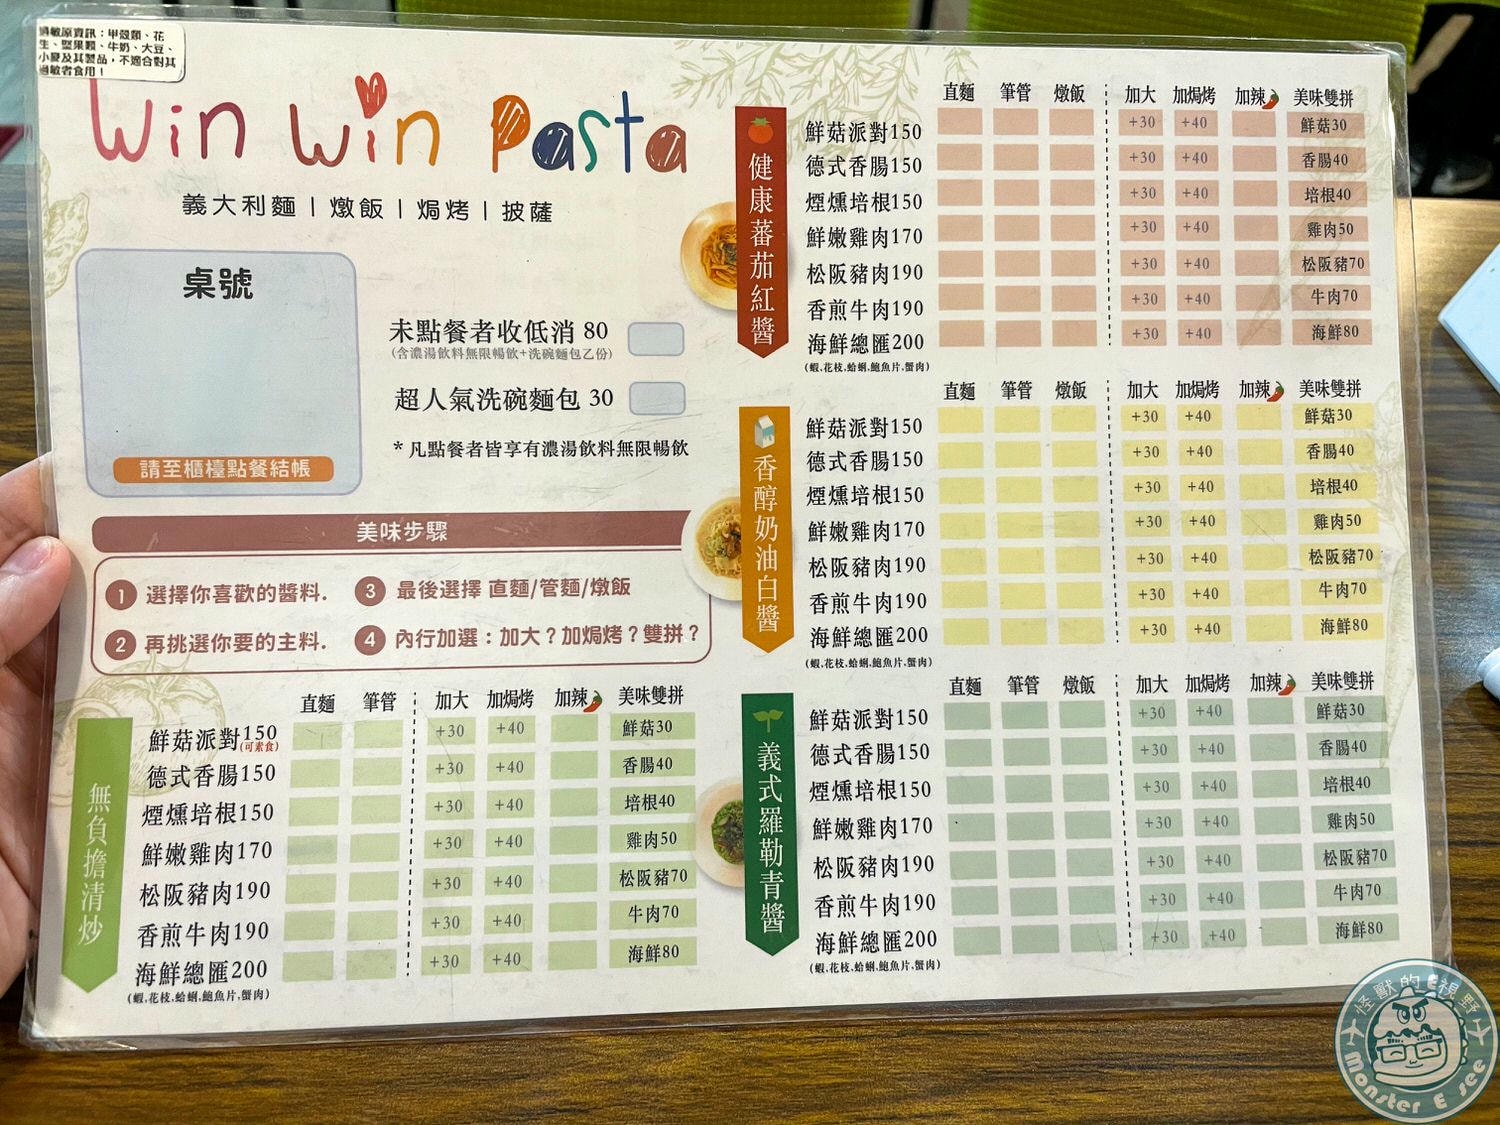 過敏原資訊：甲殼類、花
生、堅果類、牛奶、大豆、
小麥及其製品，不適合對其
過敏者食用！
win win Pasta
義大利麵 | 燉飯 | 焗烤 | 披薩
桌號
請至櫃檯點餐結帳
未點餐者收低消 80
(含濃湯飲料無限暢飲+洗碗麵包乙份)
超人氣洗碗麵包 30
* 凡點餐者皆享有濃湯飲料無限暢飲
美味步驟
1 選擇你喜歡的醬料.
2 再挑選你要的主料.
3 最後選擇 直麵/管麵/燉飯
4 內行加選：加大？加焗烤？雙拼？
無負擔清炒
直麵 筆管 加大 加焗烤 加辣 美味雙拼
鮮菇派對150 +30 +40 鮮菇30
(可素食)
德式香腸150 +30 +40 香腸40
煙燻培根150 +30 +40 培根40
鮮嫩雞肉170 +30 +40 雞肉50
松阪豬肉190 +30 +40 松阪豬70
香煎牛肉190 +30 +40 牛肉70
海鮮總匯200 +30 +40 海鮮80
(蝦,花枝,蛤蜊,鮑魚片,蟹肉)
健康蕃茄紅醬
直麵 筆管 燉飯 加大 加焗烤 加辣 美味雙拼
鮮菇派對150 +30 +40 鮮菇30
德式香腸150 +30 +40 香腸40
煙燻培根150 +30 +40 培根40
鮮嫩雞肉170 +30 +40 雞肉50
松阪豬肉190 +30 +40 松阪豬70
香煎牛肉190 +30 +40 牛肉70
海鮮總匯200 +30 +40 海鮮80
(蝦,花枝,蛤蜊,鮑魚片,蟹肉)
香醇奶油白醬
直麵 筆管 燉飯 加大 加焗烤 加辣 美味雙拼
鮮菇派對150 +30 +40 鮮菇30
德式香腸150 +30 +40 香腸40
煙燻培根150 +30 +40 培根40
鮮嫩雞肉170 +30 +40 雞肉50
松阪豬肉190 +30 +40 松阪豬70
香煎牛肉190 +30 +40 牛肉70
海鮮總匯200 +30 +40 海鮮80
(蝦,花枝,蛤蜊,鮑魚片,蟹肉)
義式羅勒青醬
直麵 筆管 燉飯 加大 加焗烤 加辣 美味雙拼
鮮菇派對150 +30 +40 鮮菇30
德式香腸150 +30 +40 香腸40
煙燻培根150 +30 +40 培根40
鮮嫩雞肉170 +30 +40 雞肉50
松阪豬肉190 +30 +40 松阪豬70
香煎牛肉190 +30 +40 牛肉70
海鮮總匯200 +30 +40 海鮮80
(蝦,花枝,蛤蜊,鮑魚片,蟹肉)
怪獸的E視野
monster E see